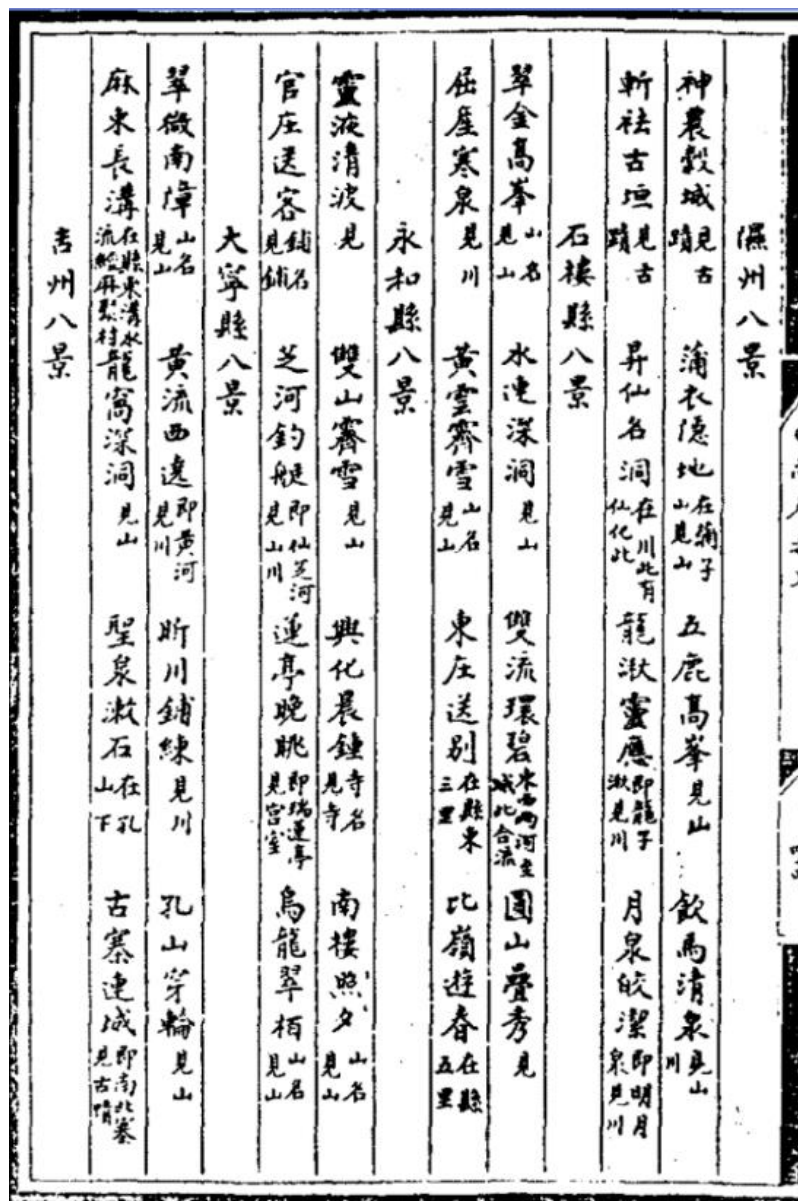 隰州八景
神農穀城見古蹟 蒲衣隱地在蒲子山見山 五鹿高峯見山 飲馬清泉見山川
斬祛古垣見古蹟 昇仙名洞在川北有仙化此 龍湫靈應即龍子湫見川 月泉皎潔即明月泉見川
石樓縣八景
翠金高峯山名見山 水連深洞見山 雙流環碧東西兩河至城北合流 團山疊秀見
屈産寒泉見川 黃雲霽雪山名見山 東庄送別在縣東三里 北嶺遊春在縣五里
永和縣八景
靈液清波見 雙山霽雪見山 興化晨鍾寺名見寺 南樓照夕山名見山
官庄送客鋪名見鋪 芝河釣艇即仙芝河見山川 蓮亭晚眺即瑞蓮亭見宫室 烏龍翠栢山名見山
大寧縣八景
翠微南障山名見山 黃流西遶即黃河見川 昕川鋪練見川 孔山穿輪見山
麻束長溝在縣東溝水流經麻束村 龍窩深洞見山 聖泉漱石在孔山下 古寨連城即南北寨見古蹟
吉州八景